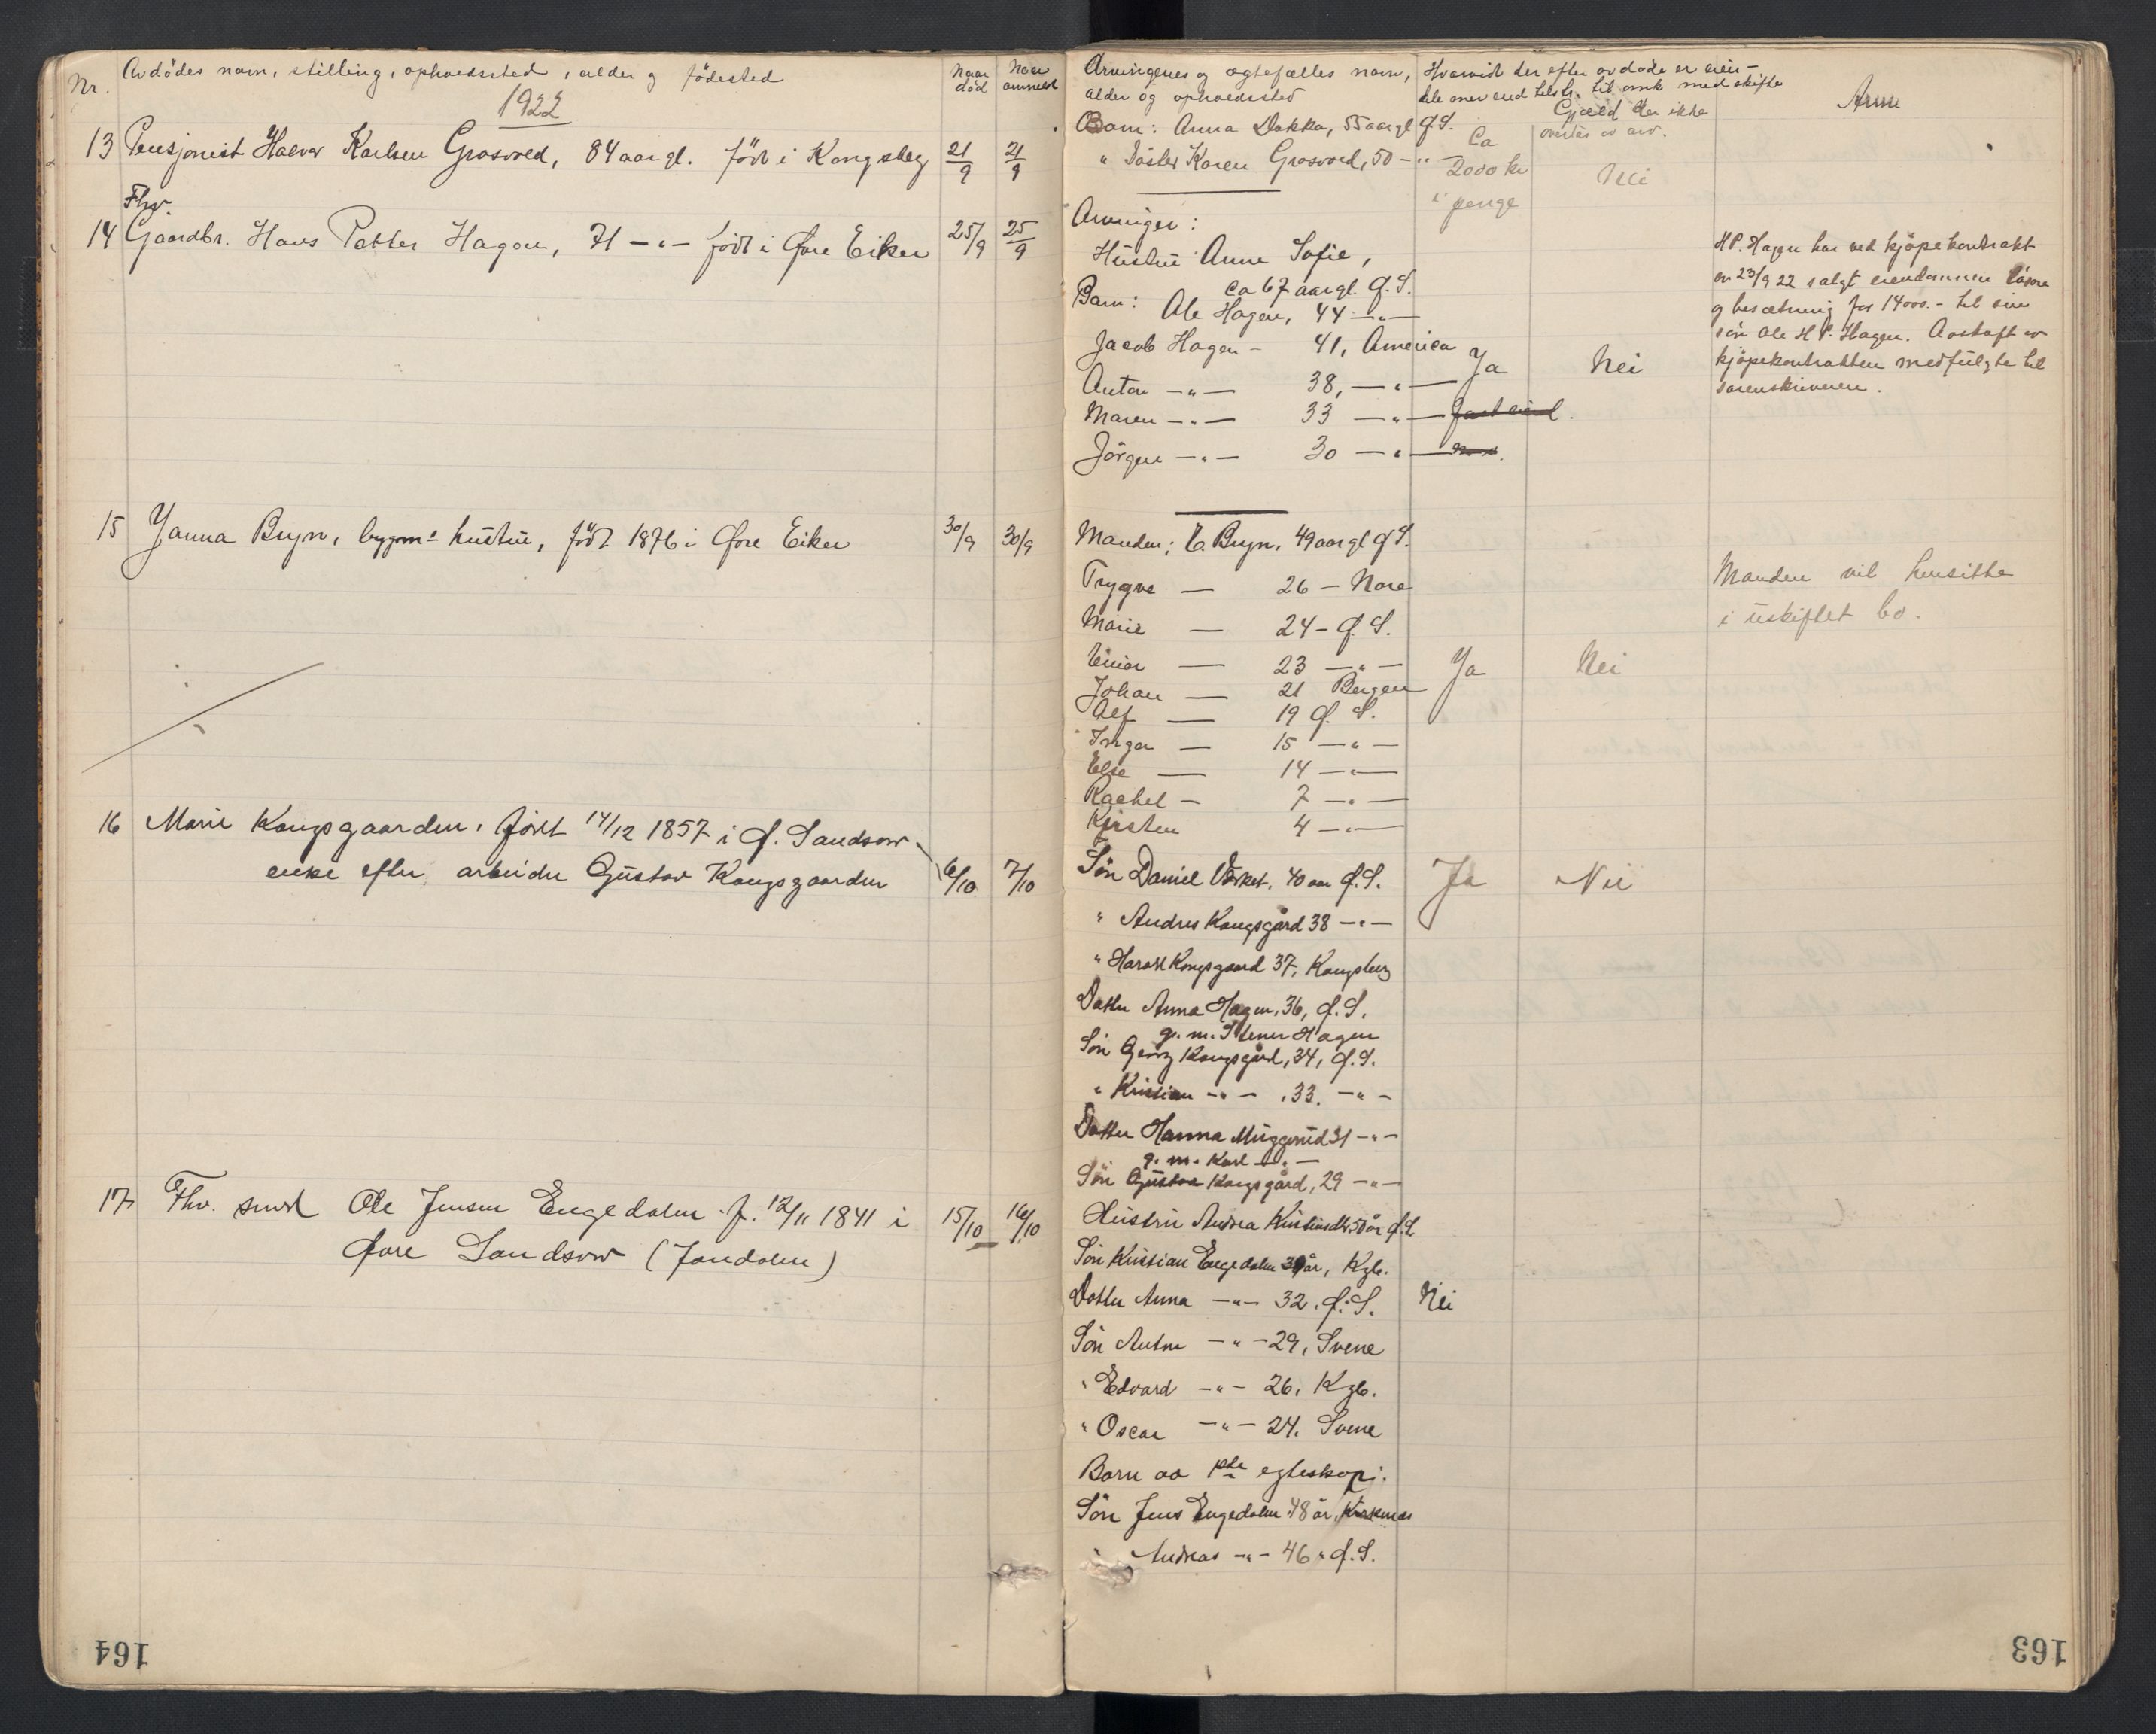 Nr. Avdödes navn, stilling, opholdssted, alder og födested Naar död Naar anmeldt
1922
13 Pensjonist Halvor Karlsen Grosvold, 84 aar gl. född i Kongsberg 21/9 21/9
Fhv.
14 Gaardbr. Hans Petter Hagen, 71 — " — född i Øvre Eiker 25/9 25/9
15 Janna Bryn, bygm. hustru, född 1876 i Øvre Eiker 30/9 30/9
16 Marie Kongsgaarden, född 14/12 1857 i Ø. Sandsvær
enke efter arbeider Gustav Kongsgaarden 6/10 7/10
17 Fhv. smed Ole Jensen Engedalen f. 12/11 1841 i 15/10 16/10
Øvre Sandsvær (Jondalen)
164
Arvingenes og ægtefælles navn, Hvorvidt der efter avdöde er eien-
alder og opholdssted dele mer end tilstr. til omk med skifte Anm
Gjæld der ikke
Barn: Anna Dokka, 55 aar gl Ø.S. overtas av arv.
" Datter Karen Grosvold, 50 — " — Ca
2000 kr Nei
i penge
Arvinger:
Hustru Anne Sofie,
ca 67 aar gl. Ø.S.
Barn: Ole Hagen, 44 — " —
Jacob Hagen — 41, America
Anton — " — 38, — " — Ja Nei
Maren — " — 33 — " —
Jörgen — " — 30 — " —
H.P. Hagen har ved kjöpekontrakt
av 23/9 22 solgt eiendommen lösöre
og besætning for 14000.- til sin
sön Ole H.P. Hagen. Avskrift av
kjöpekontrakten medfulgte til
sorenskriveren.
Manden: E. Bryn, 49 aar gl Ø S.
Trygve — 26 — Nore
Marie — 24 — Ø. S.
Einar — 23 — " — Ja Nei
Johan — 21 Bergen
Alf — 19 Ø. S.
Inga — 15 — " —
Else — 14 — " —
Rachel — 7 — " —
Kirsten 4 — " —
Manden vil hensitte
i uskiftet bo.
Sön Daniel Værket, 40 aar Ø.S. Ja Nei
" Andres Kongsgård 38 — " —
" Harald Kongsgaard 37, Kongsberg
Datter Anna Hagen, 36, Ø.S.
g. m. Stener Hagen
Sön Georg Kongsgård, 34, Ø.S.
" Kristian — " — , 33. — " —
Datter Hanna Muggerud 31 — " —
g. m. Karl — " —
Sön Gustav Kongsgård, 29 — " —
Hustru Andrea Kristiansdtr. 50 år Ø.S
Sön Kristian Engedalen år, Kgb.
Datter Anna — " — 32. Ø.S. Nei
Sön Anton — " — 29, Svene
" Edvard — " — 26, Kgb.
" Oscar — " — 24. Svene
Barn av 1ste egteskap:
Sön Jens Engedalen 48 år, Kirkenes
" Andreas — " — 46 " Ø.S.
163